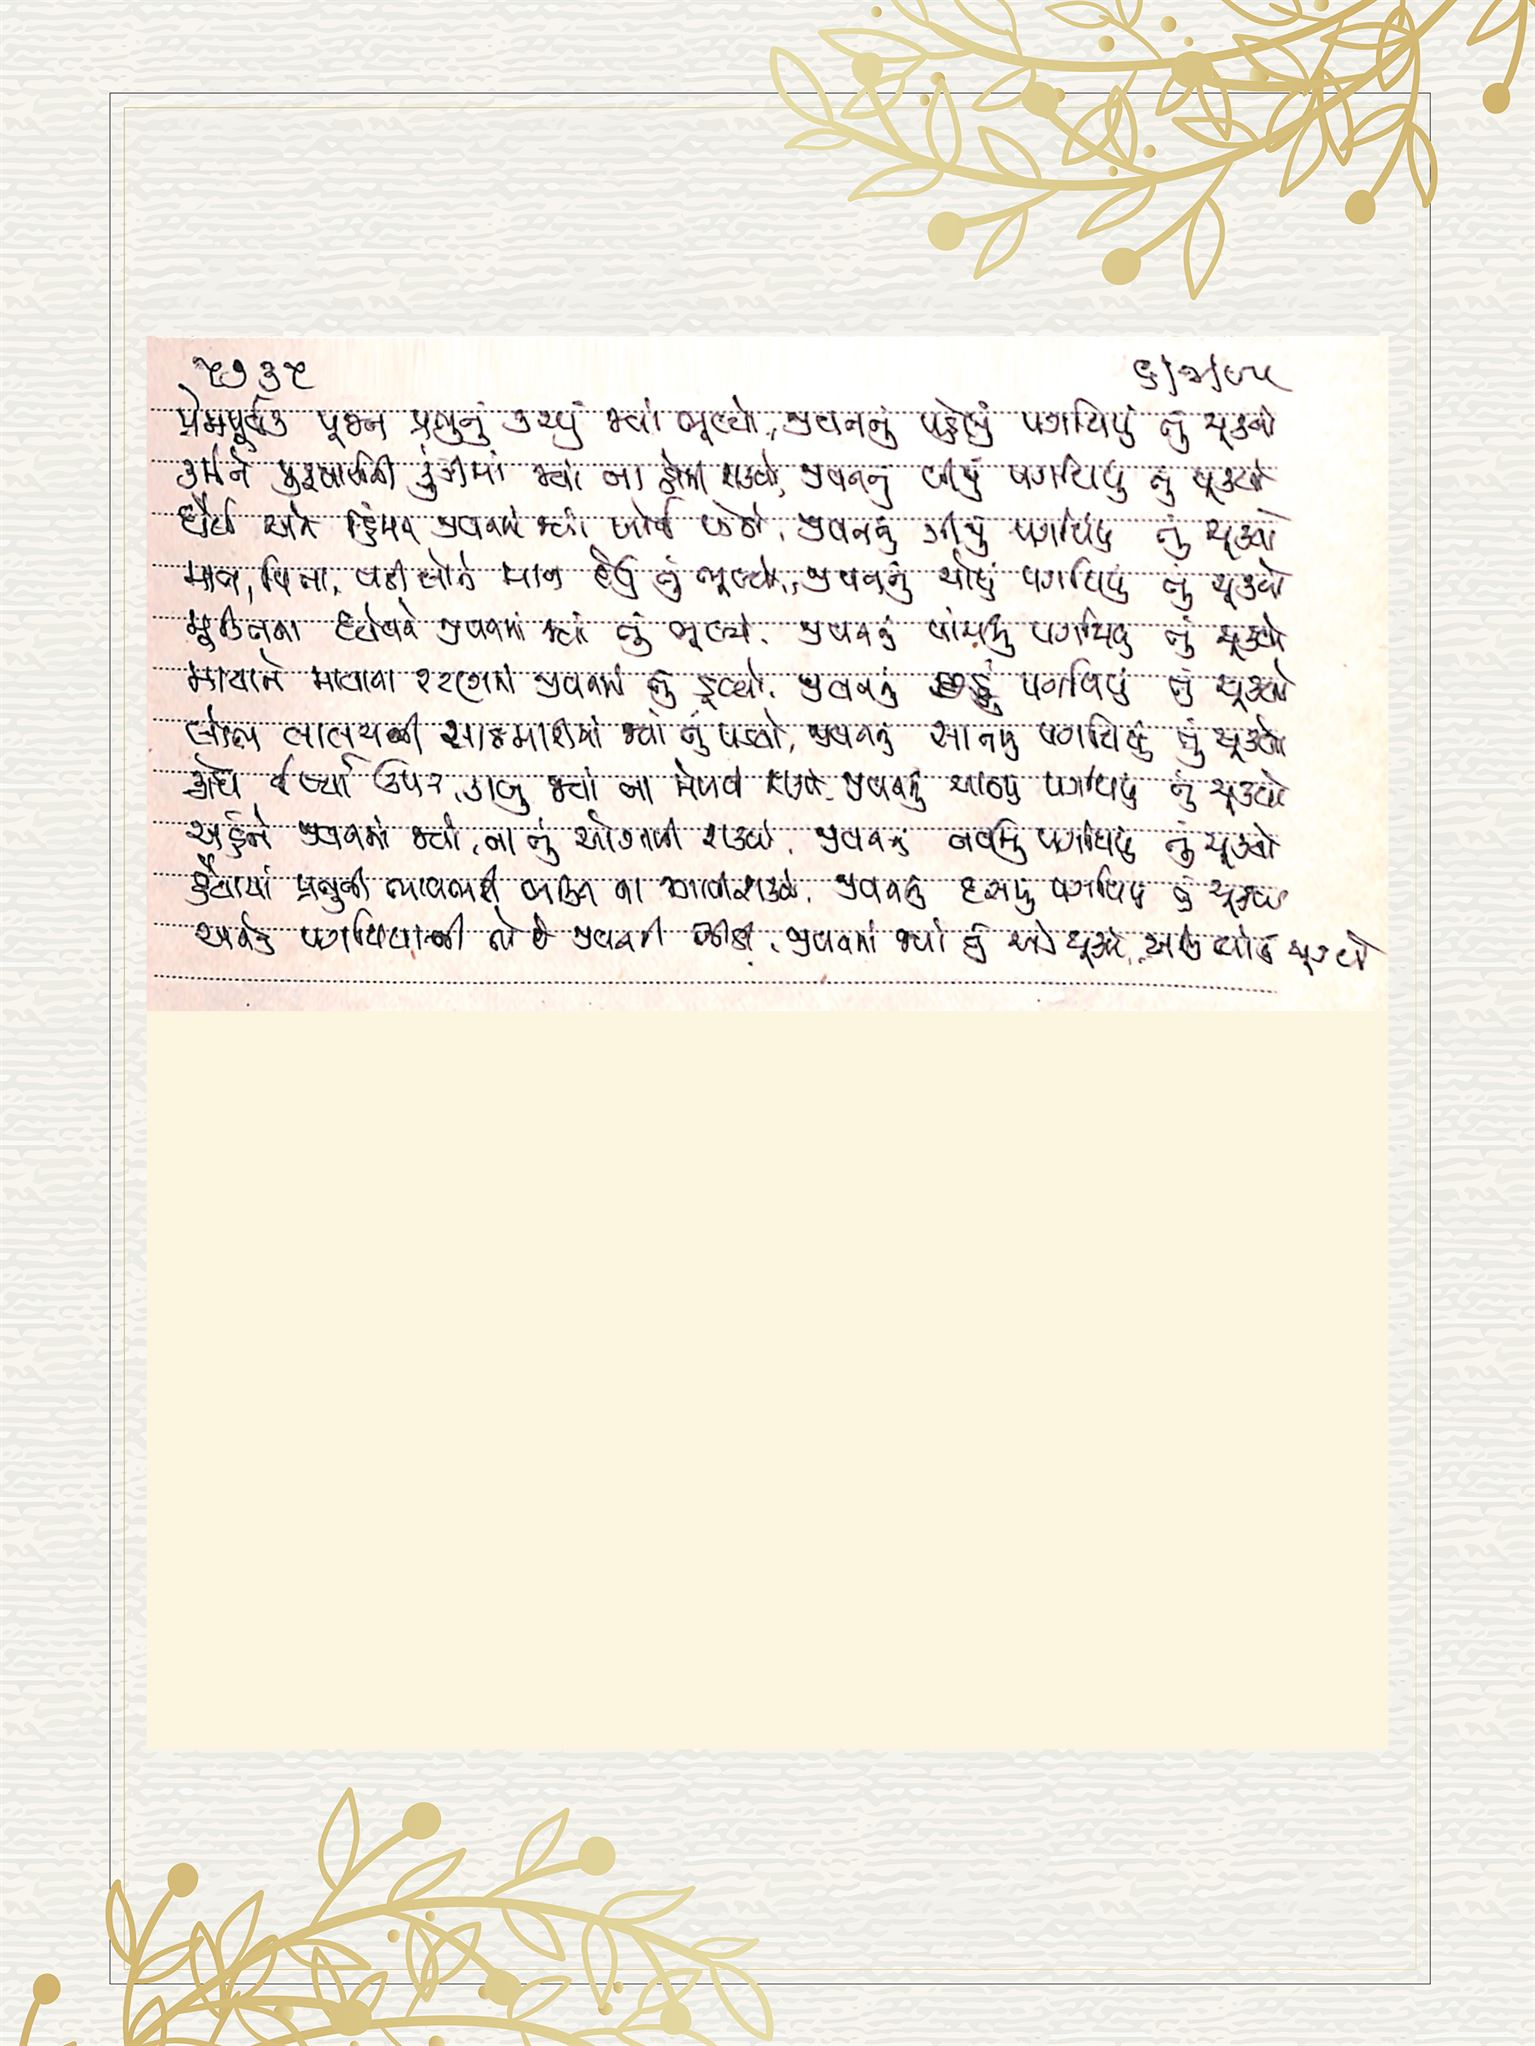 ૫૭૩૯
પ્રેમપૂર્વક પૂજન પ્રભુનું કરવું જ્યાં ભૂલ્યો, જીવનનું પહેલું પગથિયું તું ચૂક્યો
કર્મને પુરુષાર્થની કુંજીમાં જ્યાં ના શક્યો, જીવનનું બીજું પગથિયું તું ચૂક્યો
ધૈર્ય અને હિંમત જીવનમાં જ્યાં ખોઈ બેઠો, જીવનનું ત્રીજું પગથિયું તું ચૂક્યો
માન, વિના, અન્યને માન દેવું તું ભૂલ્યો, જીવનનું ચોથું પગથિયું તું ચૂક્યો
મુક્તિના ધ્યેયને જીવનમાં જ્યાં તું ભૂલ્યો, જીવનનું પાંચમું પગથિયું તું ચૂક્યો
માયાને માયાના જીવનમાં તું ડૂબ્યો, જીવનનું છઠ્ઠું પગથિયું તું ચૂક્યો
લોભ લાલચની સાઠમારીમાં જ્યાં તું પડયો, જીવનનું સાતમું પગથિયું તું ચૂક્યો
ક્રોધ ઈર્ષ્યા ઉપર, કાબૂ જ્યાં ના મેળવી શક્યો જીવનનું આઠમું પગથિયું તું ચૂક્યો
અહંને જીવનમાં જ્યાં, ના તું ઓગાળી શક્યો, જીવનનું નવમું પગથિયું તું ચૂક્યો
હૈયામાં પ્રભુની ભાવભરી ભક્તિ ના શક્યો, જીવનનું દસમું પગથિયું તું ચૂક્યો
પગથિયાની તો છે જીવનની સીડી, જીવનમાં જ્યાં તું એ ચૂક્યો, ચૂક્યો